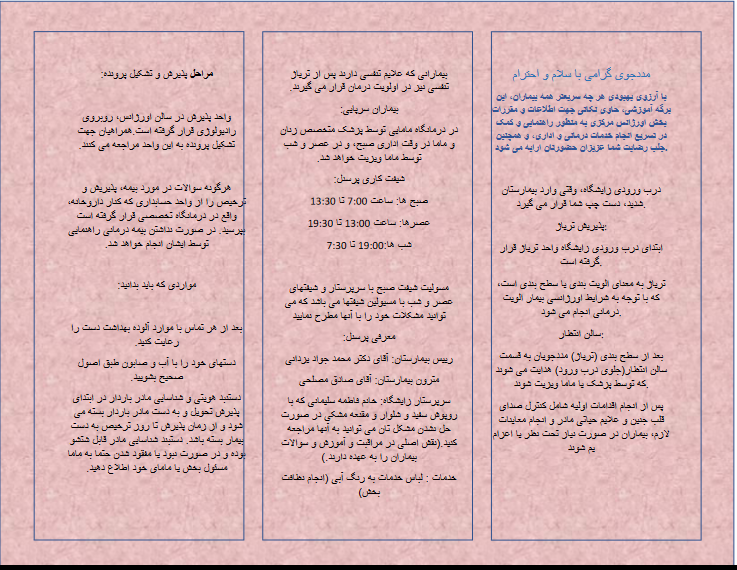 مددجوی گرامی با سلام و احترام
با آرزوی بهبودی هر چه سریعتر همه بیماران، این
برگه آموزشی، حاوی نکاتی جهت اطلاعات و مقررات
بخش اورژانس مرکزی به منظور راهنمایی و کمک
در تسریع انجام خدمات درمانی و اداری، و همچنین
جلب رضایت شما عزیزان حضورتان ارایه می شود.
درب ورودی زایشگاه، وقتی وارد بیمارستان
شدید، دست چپ شما قرار می گیرد.
پذیریش تریاژ:
ابتدای درب ورودی زایشگاه واحد تریاژ قرار
گرفته است.
تریاژ به معنای الویت بندی یا سطح بندی است،
که با توجه به شرایط اورژانسی بیمار الویت
درمانی انجام می شود.
سالن انتظار:
بعد از سطح بندی (تریاژ) مددجویان به قسمت
سالن انتظار(جلوی درب ورود) هدایت می شوند
که توسط پزشک یا ماما ویزیت شوند.
پس از انجام اقدامات اولیه شامل کنترل صدای
قلب جنین و علایم حیاتی مادر و انجام معاینات
لازم، بیماران در صورت نیاز تحت نظر یا اعزام
یم شوند
بیمارانی که علایم تنفسی دارند پس از تریاژ
تنفسی نیز در اولویت درمان قرار می گیرند.
بیماران سرپایی:
در درمانگاه مامایی توسط پزشک متخصص زنان
و ماما در وقت اداری صبح، و در عصر و شب
توسط ماما ویزیت خواهد شد.
شیفت کاری پرسنل:
صبح ها: ساعت 7:00 تا 13:30
عصرها: ساعت 13:00 تا 19:30
شب ها:19:00 تا 7:30
مسولیت شیفت صبح با سرپرستار و شیفتهای
عصر و شب با مسولین شیفتها می باشد که می
توانید مشکلات خود را با آنها مطرح نمایید
معرفی پرسنل:
رییس بیمارستان: آقای دکتر محمد جواد یزدانی
مترون بیمارستان: آقای صادق مصلحی
سرپرستار زایشگاه: خانم فاطمه سلیمانی که با
روپوش سفید و شلوار و مقنعه مشکی در صورت
حل نشدن مشکل تان می توانید به آنها مراجعه
کنید.(نقش اصلی در مراقبت و آموزش و سوالات
بیماران را به عهده دارند.)
خدمات : لباس خدمات به رنگ آبی (انجام نظافت
بخش)
مراحل پذیرش و تشکیل پرونده:
واحد پذیرش در سالن اورژانس، روبروی
رادیولوژی قرار گرفته است.همراهیان جهت
تشکیل پرونده به این واحد مراجعه می کنند.
هرگونه سوالات در مورد بیمه، پذیریش و
ترخیص را از واحد حسابداری که کنار داروخانه،
واقع در درمانگاه تخصصی قرار گرفته است
بپرسید. در صورت نداشتن بیمه درمانی راهنمایی
توسط ایشان انجام خواهد شد.
مواردی که باید بدانید:
بعد از هر تماس با موارد آلوده بهداشت دست را
رعایت کنید.
دستهای خود را با آب و صابون طبق اصول
صحیح بشویید.
دستبند هویتی و شناسایی مادر باردار در ابتدای
پذیرش تحویل و به دست مادر باردار بسته می
شود و از زمان پذیرش تا روز ترخیص به دست
بیمار بسته باشد. دستبند شناسایی مادر قابل شتشو
بوده و در صورت نبود یا مفقود شدن حتما به ماما
مسئول بخش یا مامای خود اطلاع دهید.